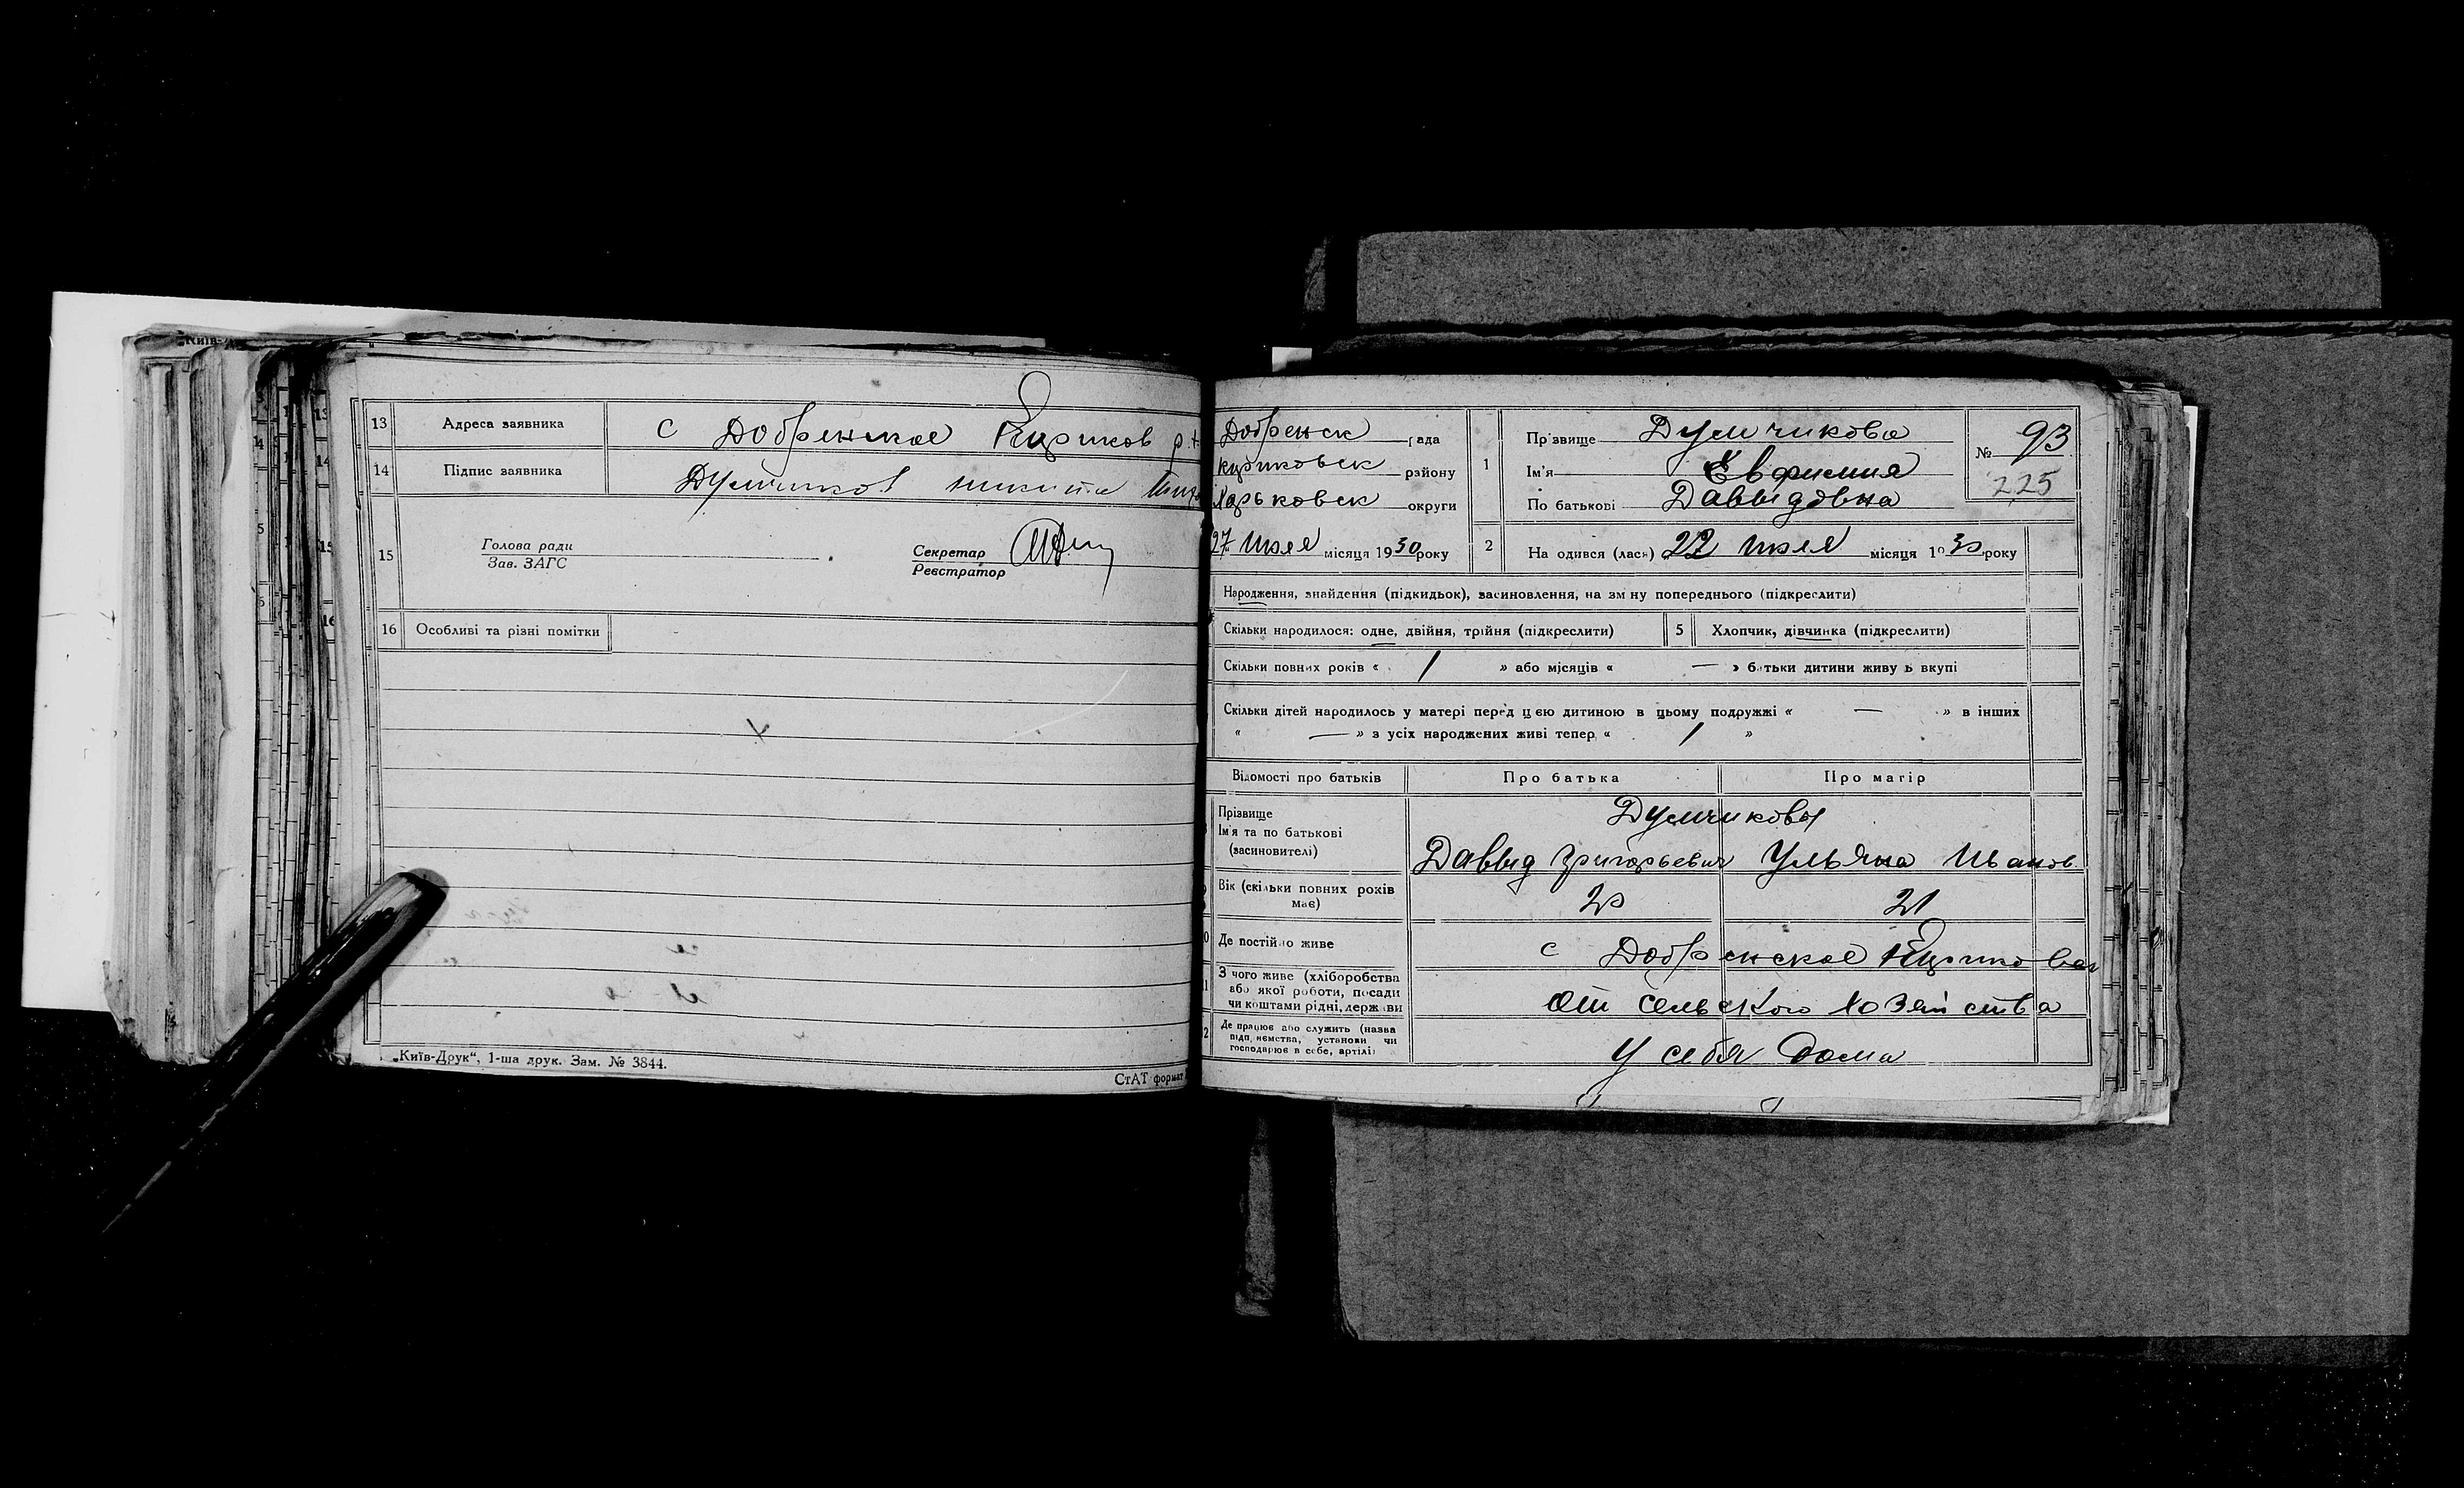 13 Адреса заявника с Добренькое Кириков р.
14 Підпис заявника Думчиков никита
15 Голова ради
Зав. ЗАГС
Секретар
Реєстратор
16 Особливі та різні помітки
„Київ-Друк“, 1-ша друк. Зам. № 3844.
СтАТ формат
Добренск рада
кириковск району
Харьковск округи
27 июля місяця 1930 року
1 Прізвище Думчикова
Ім'я Евфимия
По батькові Давыдовна
№ 93
225
2 На одився (лася) 22 июля місяця 1930 року
Народження, знайдення (підкидьок), засиновлення, на зміну попереднього (підкреслити)
Скільки народилося: одне, двійня, трійня (підкреслити) 5 Хлопчик, дівчинка (підкреслити)
Скільки повних років « 1 » або місяців « — » батьки дитини живуть вкупі
Скільки дітей народилось у матері перед цією дитиною в цьому подружжі « — » в інших
« — » з усіх народжених живі тепер « 1 »
Відомості про батьків Про батька Про матір
Прізвище
Ім'я та по батькові
(засиновителі)
Думчиковы
Давыд Григорьевич Ульяна Иванов.
Вік (скільки повних років має) 20 21
Де постійно живе с Добренское Кириковск
З чого живе (хліборобства
або якої роботи, посади
чи коштами рідні, держави
от сельского хозяйства
Де працює або служить (назва
підприємства, установи чи
господарює в себе, артілі)
у себя дома